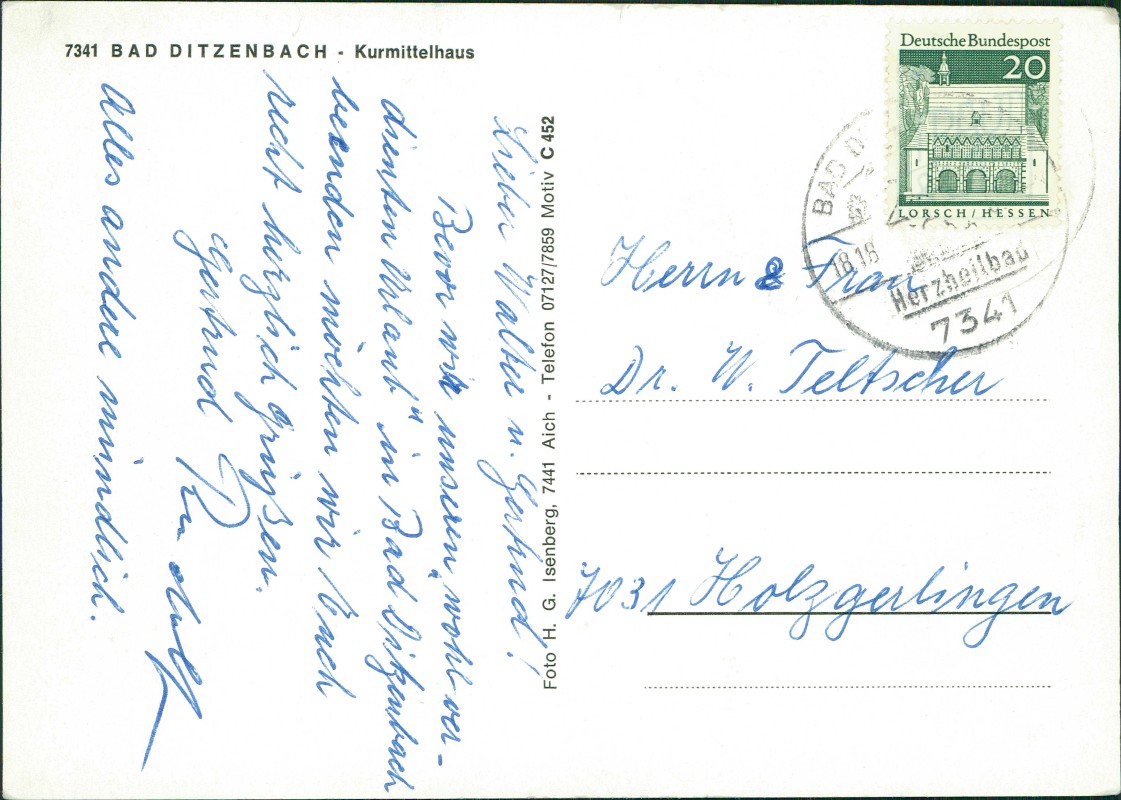 7341 BAD DITZENBACH - Kurmittelhaus
Lieber Walter u. Gertrud!
Bevor wir unseren "wohlver-
dienten Urlaub" in Bad Ditzenbach
beenden möchten wir Euch
recht herzlich grüßen.
Gertrud
Alles andere mündlich.
Foto H. G. Isenberg, 7441 Aich - Telefon 07127/7859 Motiv C 452
Deutsche Bundespost
20
LORSCH/HESSEN
BAD D
18.18
Herzheilbad
7341
Herrn & Frau
Dr. W. Teltscher
7031 Holzgerlingen